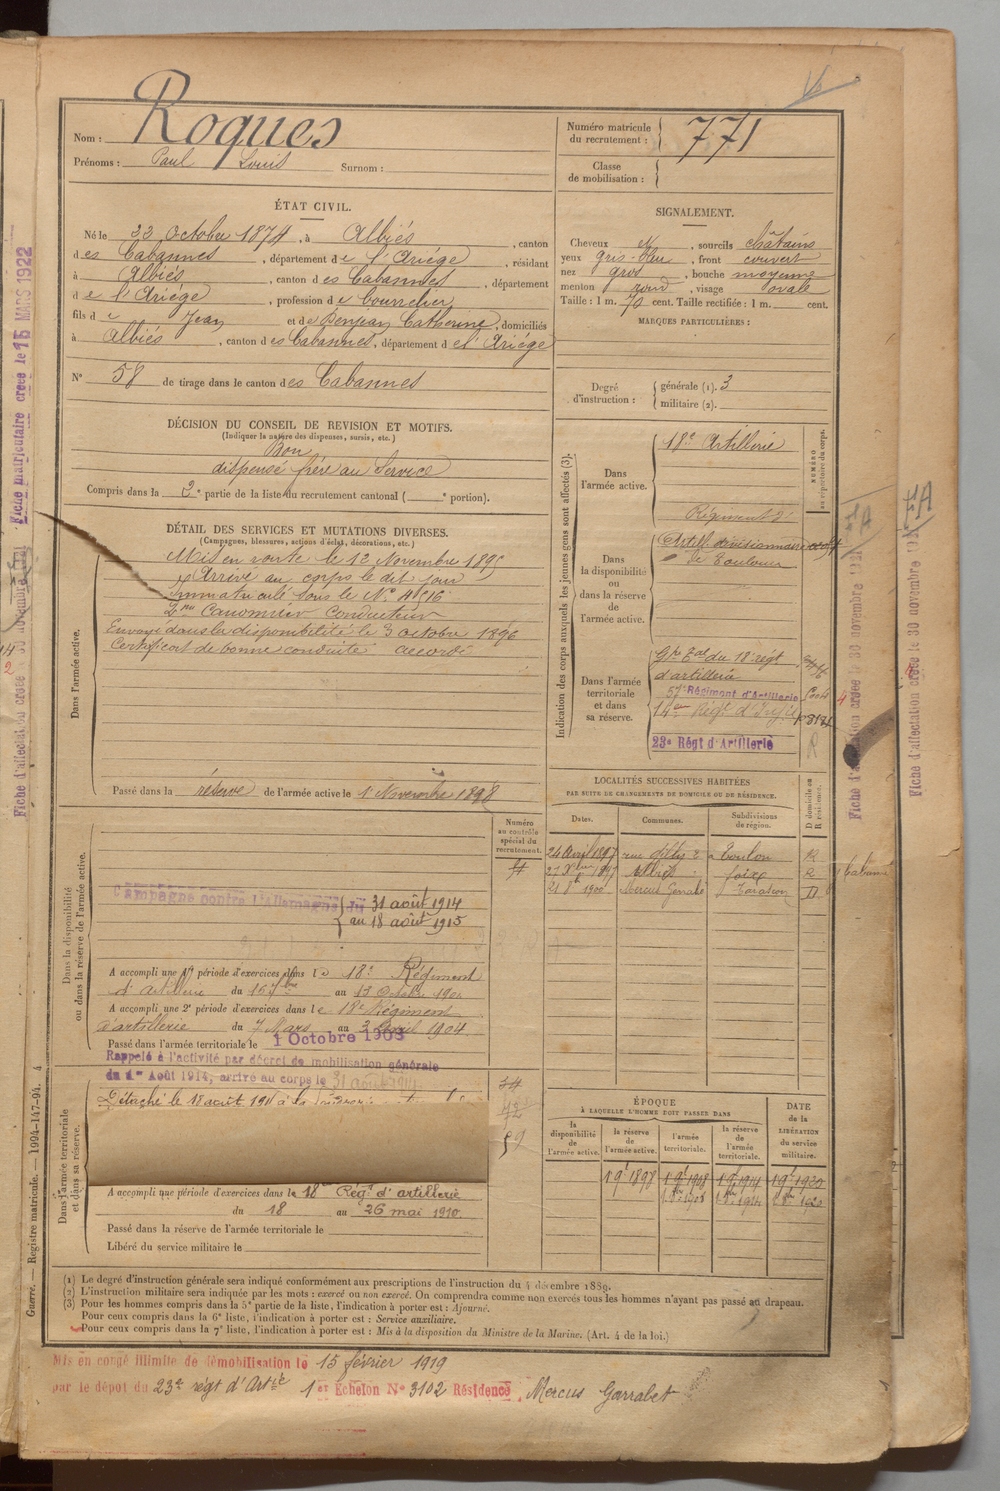 Nom : Roques
Prénoms : Paul Louis Surnom :
Numéro matricule du recrutement : 771
Classe de mobilisation :
ÉTAT CIVIL.
Né le 22 Octobre 1874, à Albiés, canton
des Cabannes, département de l'Ariége, résidant
à Albiés, canton des Cabannes, département
de l'Ariége, profession de bourrelier,
fils de Jean et de Benjean Catherine, domiciliés
à Albiés, canton des Cabannes, département de l'Ariége
N° 58 de tirage dans le canton des Cabannes
SIGNALEMENT.
Cheveux , sourcils châtains
yeux gris-bleu, front couvert
nez gros, bouche moyenne
menton rond, visage ovale
Taille : 1 m. 70 cent. Taille rectifiée : 1 m. cent.
MARQUES PARTICULIÈRES :
Degré d'instruction : générale (1). 3
militaire (2).
DÉCISION DU CONSEIL DE REVISION ET MOTIFS.
(Indiquer la nature des dispenses, sursis, etc.)
Bon
dispensé frère au Service
Compris dans la 2e partie de la liste du recrutement cantonal ( e portion).
DÉTAIL DES SERVICES ET MUTATIONS DIVERSES.
(Campagnes, blessures, actions d'éclat, décorations, etc.)
Dans l'armée active.
Mis en route le 12 Novembre 1895
Arrivé au corps le dit jour
immatriculé sous le N° 4516
2me Canonnier Conducteur
Envoyé dans la disponibilité le 3 octobre 1896
Certificat de bonne conduite accordé
Passé dans la réserve de l'armée active le 1 Novembre 1898
Indication des corps auxquels les jeunes gens sont affectés (3).
NUMÉRO au répertoire du corps.
Dans l'armée active.
18e Artillerie
Dans la disponibilité ou dans la réserve de l'armée active.
Régiment d'
Artill. divisionnaire
de Toulouse
Dans l'armée territoriale et dans sa réserve.
Gpe Tal du 18e régt
d'artillerie
57e Régiment d'Artillerie
14e Régt d'
23e Régt d'Artillerie
LOCALITÉS SUCCESSIVES HABITÉES
PAR SUITE DE CHANGEMENTS DE DOMICILE OU DE RÉSIDENCE.
Dates. Communes. Subdivisions de région. D domicile ou R résidence.
24 Avril 1897 rue Toulon R
27 Xbre 1897 Albiés foix R
21 1900 Mercus Garrabet Tarascon D
Numéro au contrôle spécial du recrutement.
Dans la disponibilité ou dans la réserve de l'armée active.
Campagne contre l'Allemagne du 31 août 1914
au 18 août 1915
A accompli une 1re période d'exercices dans le 18e Régiment
d'artillerie du 16 7bre au 13 Octobre
A accompli une 2e période d'exercices dans le 18e Régiment
d'artillerie du 7 Mars au 3 Avril 1904
Passé dans l'armée territoriale le 1 Octobre 1908
Rappelé à l'activité par décret de mobilisation générale
du 1er Août 1914, arrivé au corps le 31 août 1914
Détaché le 18 août
Dans l'armée territoriale et dans sa réserve.
A accompli une période d'exercices dans le 18e Régt d'artillerie
du 18 au 26 mai 1910
Passé dans la réserve de l'armée territoriale le
Libéré du service militaire le
ÉPOQUE
À LAQUELLE L'HOMME DOIT PASSER DANS
la disponibilité de l'armée active. la réserve de l'armée active. l'armée territoriale. la réserve de l'armée territoriale.
DATE de la LIBÉRATION du service militaire.
(1) Le degré d'instruction générale sera indiqué conformément aux prescriptions de l'instruction du 4 décembre 1889.
(2) L'instruction militaire sera indiquée par les mots : exercé ou non exercé. On comprendra comme non exercés tous les hommes n'ayant pas passé au drapeau.
(3) Pour les hommes compris dans la 5e partie de la liste, l'indication à porter est : Ajourné.
Pour ceux compris dans la 6e liste, l'indication à porter est : Service auxiliaire.
Pour ceux compris dans la 7e liste, l'indication à porter est : Mis à la disposition du Ministre de la Marine. (Art. 4 de la loi.)
Mis en congé illimité de démobilisation le 15 février 1919
par le dépôt du 23e régt d'Artie 1er Echelon N° 3102 Résidence Mercus Garrabet
Guerre. — Registre matricule. — 1994-147-94.
Fiche matriculaire créée le 15 MARS 1922
Fiche d'affectation créée le 30 novembre 1921